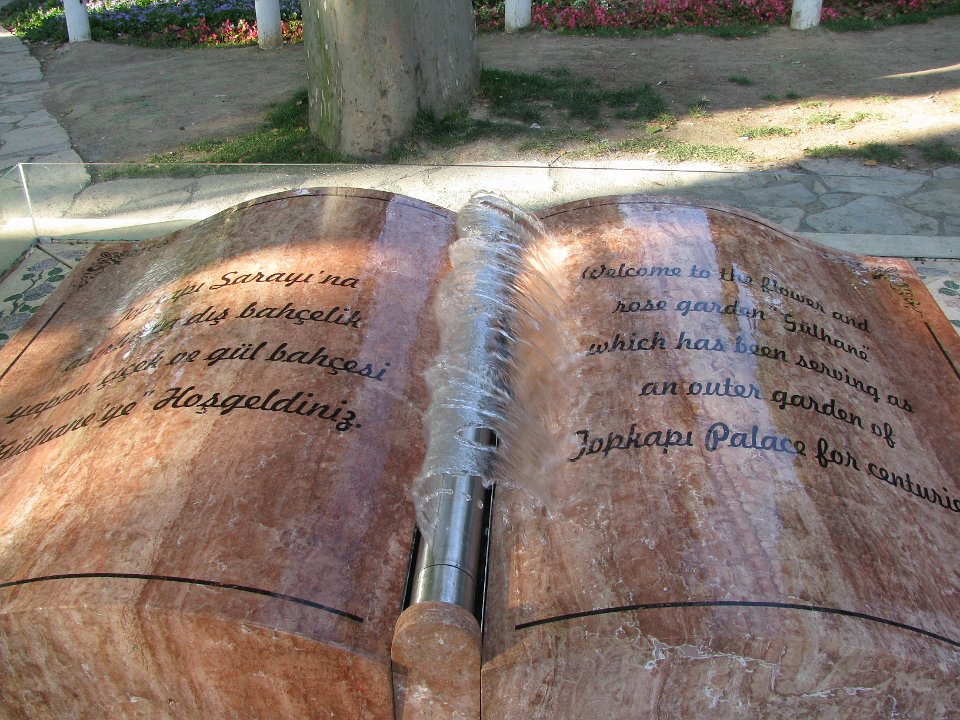 Sarayı'na
dış bahçelik
yapan, çiçek ve gül bahçesi
Gülhane'ye" Hoşgeldiniz.
Welcome to the flower and
rose garden "Gülhane"
which has been serving as
an outer garden of
Topkapı Palace for centuries